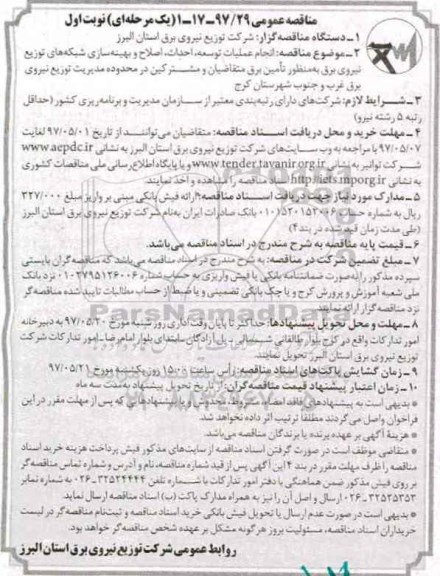 مناقصه عمومی ۹۷/۲۹-۱۷-۱ (یک مرحله‌ای) نوبت اول
۱ـ دستگاه مناقصه‌گزار: شرکت توزیع نیروی برق استان البرز
۲ـ موضوع مناقصه: انجام عملیات توسعه، احداث، اصلاح و بهینه‌سازی شبکه‌های توزیع
نیروی برق به‌منظور تأمین برق متقاضیان و مشترکین در محدوده مدیریت توزیع نیروی
برق غرب و جنوب شهرستان کرج
۳ـ شرایط لازم: شرکت‌های دارای رتبه‌بندی معتبر از سازمان مدیریت و برنامه‌ریزی کشور (حداقل
رتبه ۵ رشته نیرو)
۴ـ مهلت خرید و محل دریافت اسناد مناقصه: متقاضیان می‌توانند از تاریخ ۹۷/۰۵/۰۱ لغایت
۹۷/۰۵/۰۷ با مراجعه به وب سایت‌های شرکت توزیع نیروی برق استان البرز به نشانی www.aepdc.ir
شرکت توانیر به نشانی www.tender.tavanir.org.ir و یا پایگاه اطلاع‌رسانی ملی مناقصات کشوری
به نشانی http://iets.mporg.ir اسناد مناقصه را مشاهده و اخذ نمایند.
۵ـ مدارک مورد نیاز جهت دریافت اسناد مناقصه: ارائه فیش بانکی مبنی بر واریز مبلغ ۳۲۷/۰۰۰
ریال به شماره حساب بانک صادرات ایران به‌نام شرکت توزیع نیروی برق استان البرز
(طی مدت زمان قید شده در بند ۴)
۶ـ قیمت پایه مناقصه به شرح مندرج در اسناد مناقصه می‌باشد.
۷ـ مبلغ تضمین شرکت در مناقصه: به شرح مندرج در اسناد مناقصه می‌باشد که مناقصه گران بایستی
سپرده مذکور را به‌صورت ضمانتنامه بانکی یا فیش واریزی به حساب شماره نزد بانک
ملی شعبه آموزش و پرورش کرج و یا چک بانکی تضمینی و یا ضبط از حساب مطالبات تایید شده مناقصه گر
نزد مناقصه گزار ارائه نمایند.
۸ـ مهلت و محل تحویل پیشنهادها: حداکثر تا پایان وقت اداری روز شنبه مورخ ۹۷/۰۵/۲۰ به دبیرخانه
امور تدارکات واقع در کرج بلوار طالقانی شمالی ـ پل آزادگان ـ ابتدای بلوار امام رضا ـ امور تدارکات شرکت
توزیع نیروی برق استان البرز تحویل نمایند.
۹ـ زمان گشایش پاکت‌های اسناد مناقصه: رأس ساعت ۱۵:۰۰ روز یکشنبه مورخ ۹۷/۰۵/۲۱
۱۰ـ زمان اعتبار پیشنهاد قیمت مناقصه‌گران: از تاریخ تحویل پیشنهاد به‌مدت سه ماه
* بدیهی است به پیشنهادهای فاقد امضاء، مشروط، مخدوش و پیشنهادهایی که پس از مهلت مقرر در این
فراخوان واصل می‌گردند مطلقا ترتیب اثر داده نخواهد شد.
* هزینه آگهی بر عهده برنده یا برندگان مناقصه می‌باشد.
* متقاضی موظف است در صورت گرفتن اسناد مناقصه از سایت‌های مذکور فیش پرداخت هزینه خرید اسناد
مناقصه را ظرف مهلت مقرر در بند ۴ این آگهی پس از قید شماره مناقصه، نام و آدرس و شماره تماس مناقصه‌گر
بر روی فیش مذکور ضمن هماهنگی با دفتر امور تدارکات با شماره تلفن ۳۲۵۲۴۴۴۴-۰۲۶ به شماره نمابر
۳۲۵۲۵۳۵۳-۰۲۶ ارسال و اصل آن را نیز به همراه مدارک پاکت (ب) اسناد مناقصه ارسال نماید.
* بدیهی است در صورت عدم ارسال یا تحویل فیش بانکی خرید اسناد مناقصه و ثبت‌نام مناقصه‌گر در لیست
خریداران اسناد مناقصه، مسئولیت بروز هرگونه مشکل بر عهده شخص مناقصه‌گر خواهد بود.
روابط عمومی شرکت توزیع نیروی برق استان البرز